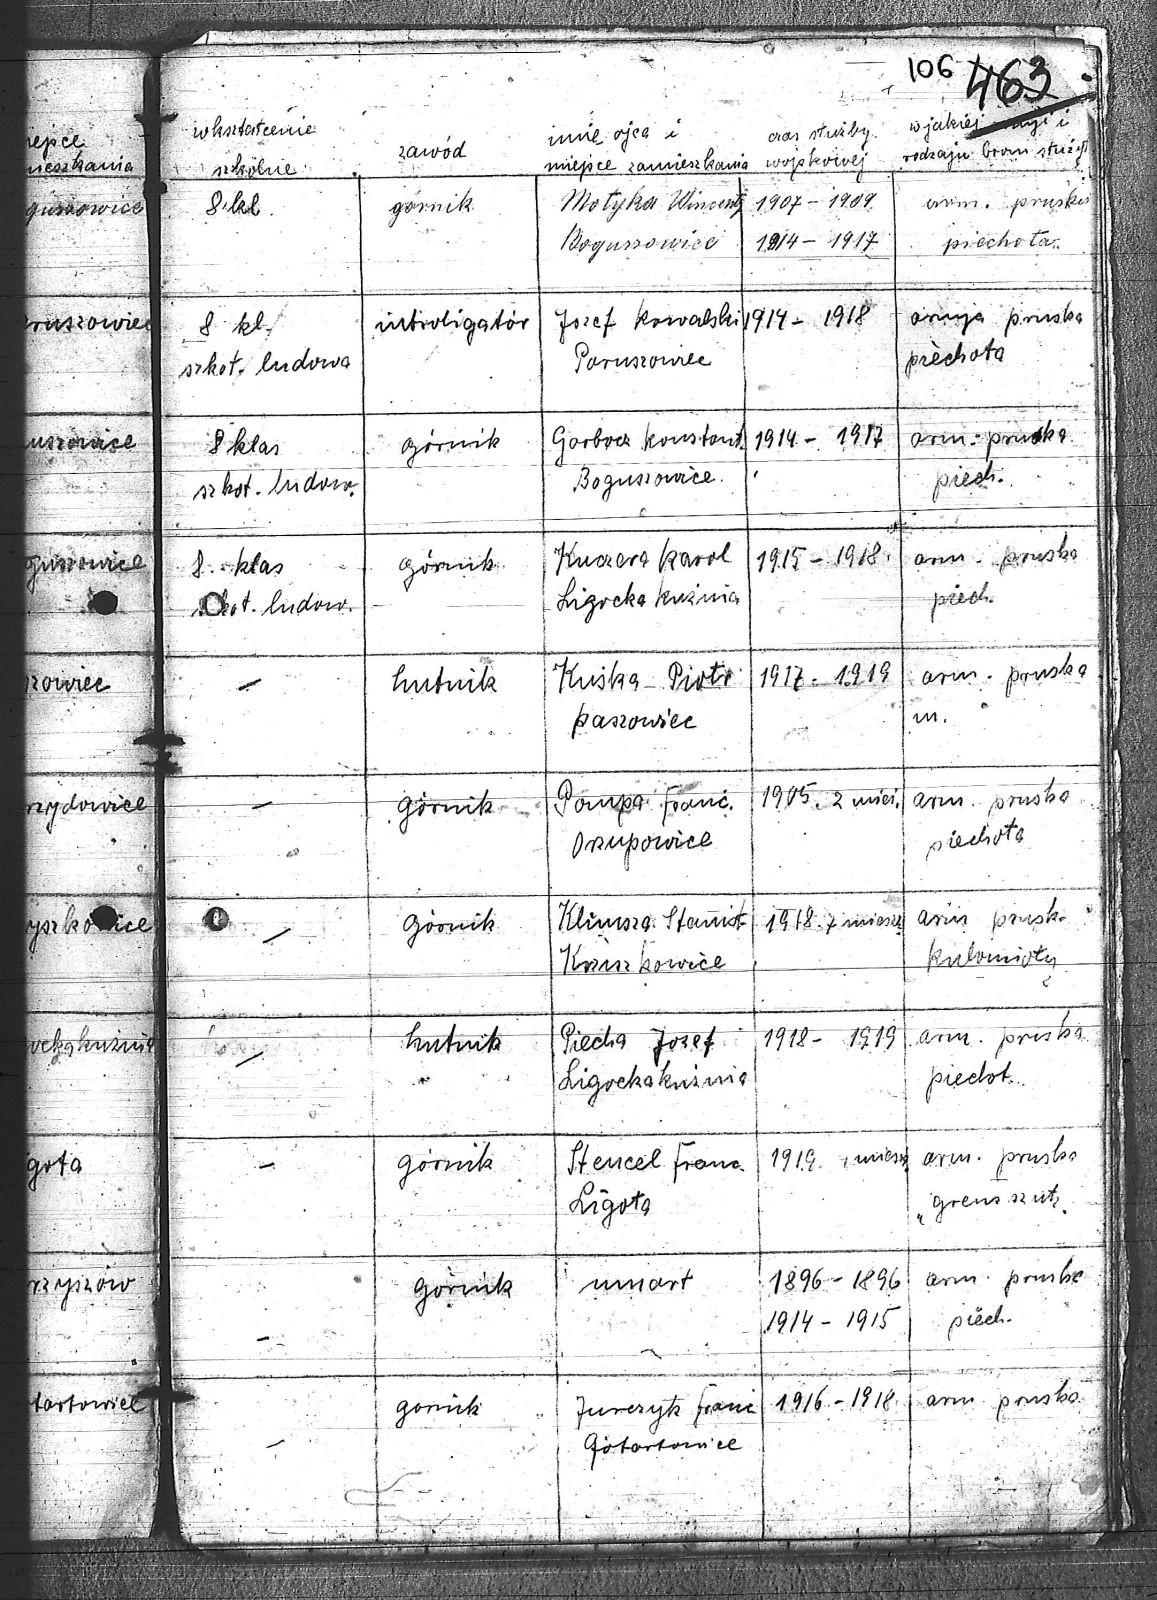 106 463
wkształcenie szkolne
zawód
imię ojca i miejsce zamieszkania
czas służby wojskowej
w jakiej i rodzaju broni służył
mieszkania
8 kl. górnik Motyka Wincenty 1907 - 1909 arm. pruska
Boguszowice 1914 - 1917 piechota.
8 kl. introligatór Jozef Kowalski 1914 - 1918 armja pruska
szkoł. ludowa Paruszowiec piechota
uszowice 8 klas górnik Garbocz Konstant. 1914 - 1917 arm. pruska
szkoł. ludow. Boguszowice. piech.
guszowice 8. klas górnik Kuczera Karol 1915 - 1918 arm. pruska
szkoł. ludow. Ligocka kuźnia piech.
zowiec — hutnik Kuśka Piotr 1917 - 1919 arm. pruska
paszowiec m.
rzydowice — górnik Pompa Franc. 1905. 2 mies. arm. pruska
Orzupowice piechota
yszkowice — górnik Klimsza Stanisł. 1918. 7 miesz arm prusk.
Krzuszkowice kulomioty
ockakuźnia — hutnik Piecha Jozef 1918 - 1919 arm. pruska
Ligockakuźnia piechot.
gota — górnik Stencel Franc. 1919 miesz arm. pruska
Ligota „grensszutz
rzyszów — górnik umart 1896 - 1896 arm. pruska
1914 - 1915 piech.
tartowiec — gornik Jurczyk Franc 1916 - 1918 arm pruska
Gotartowice